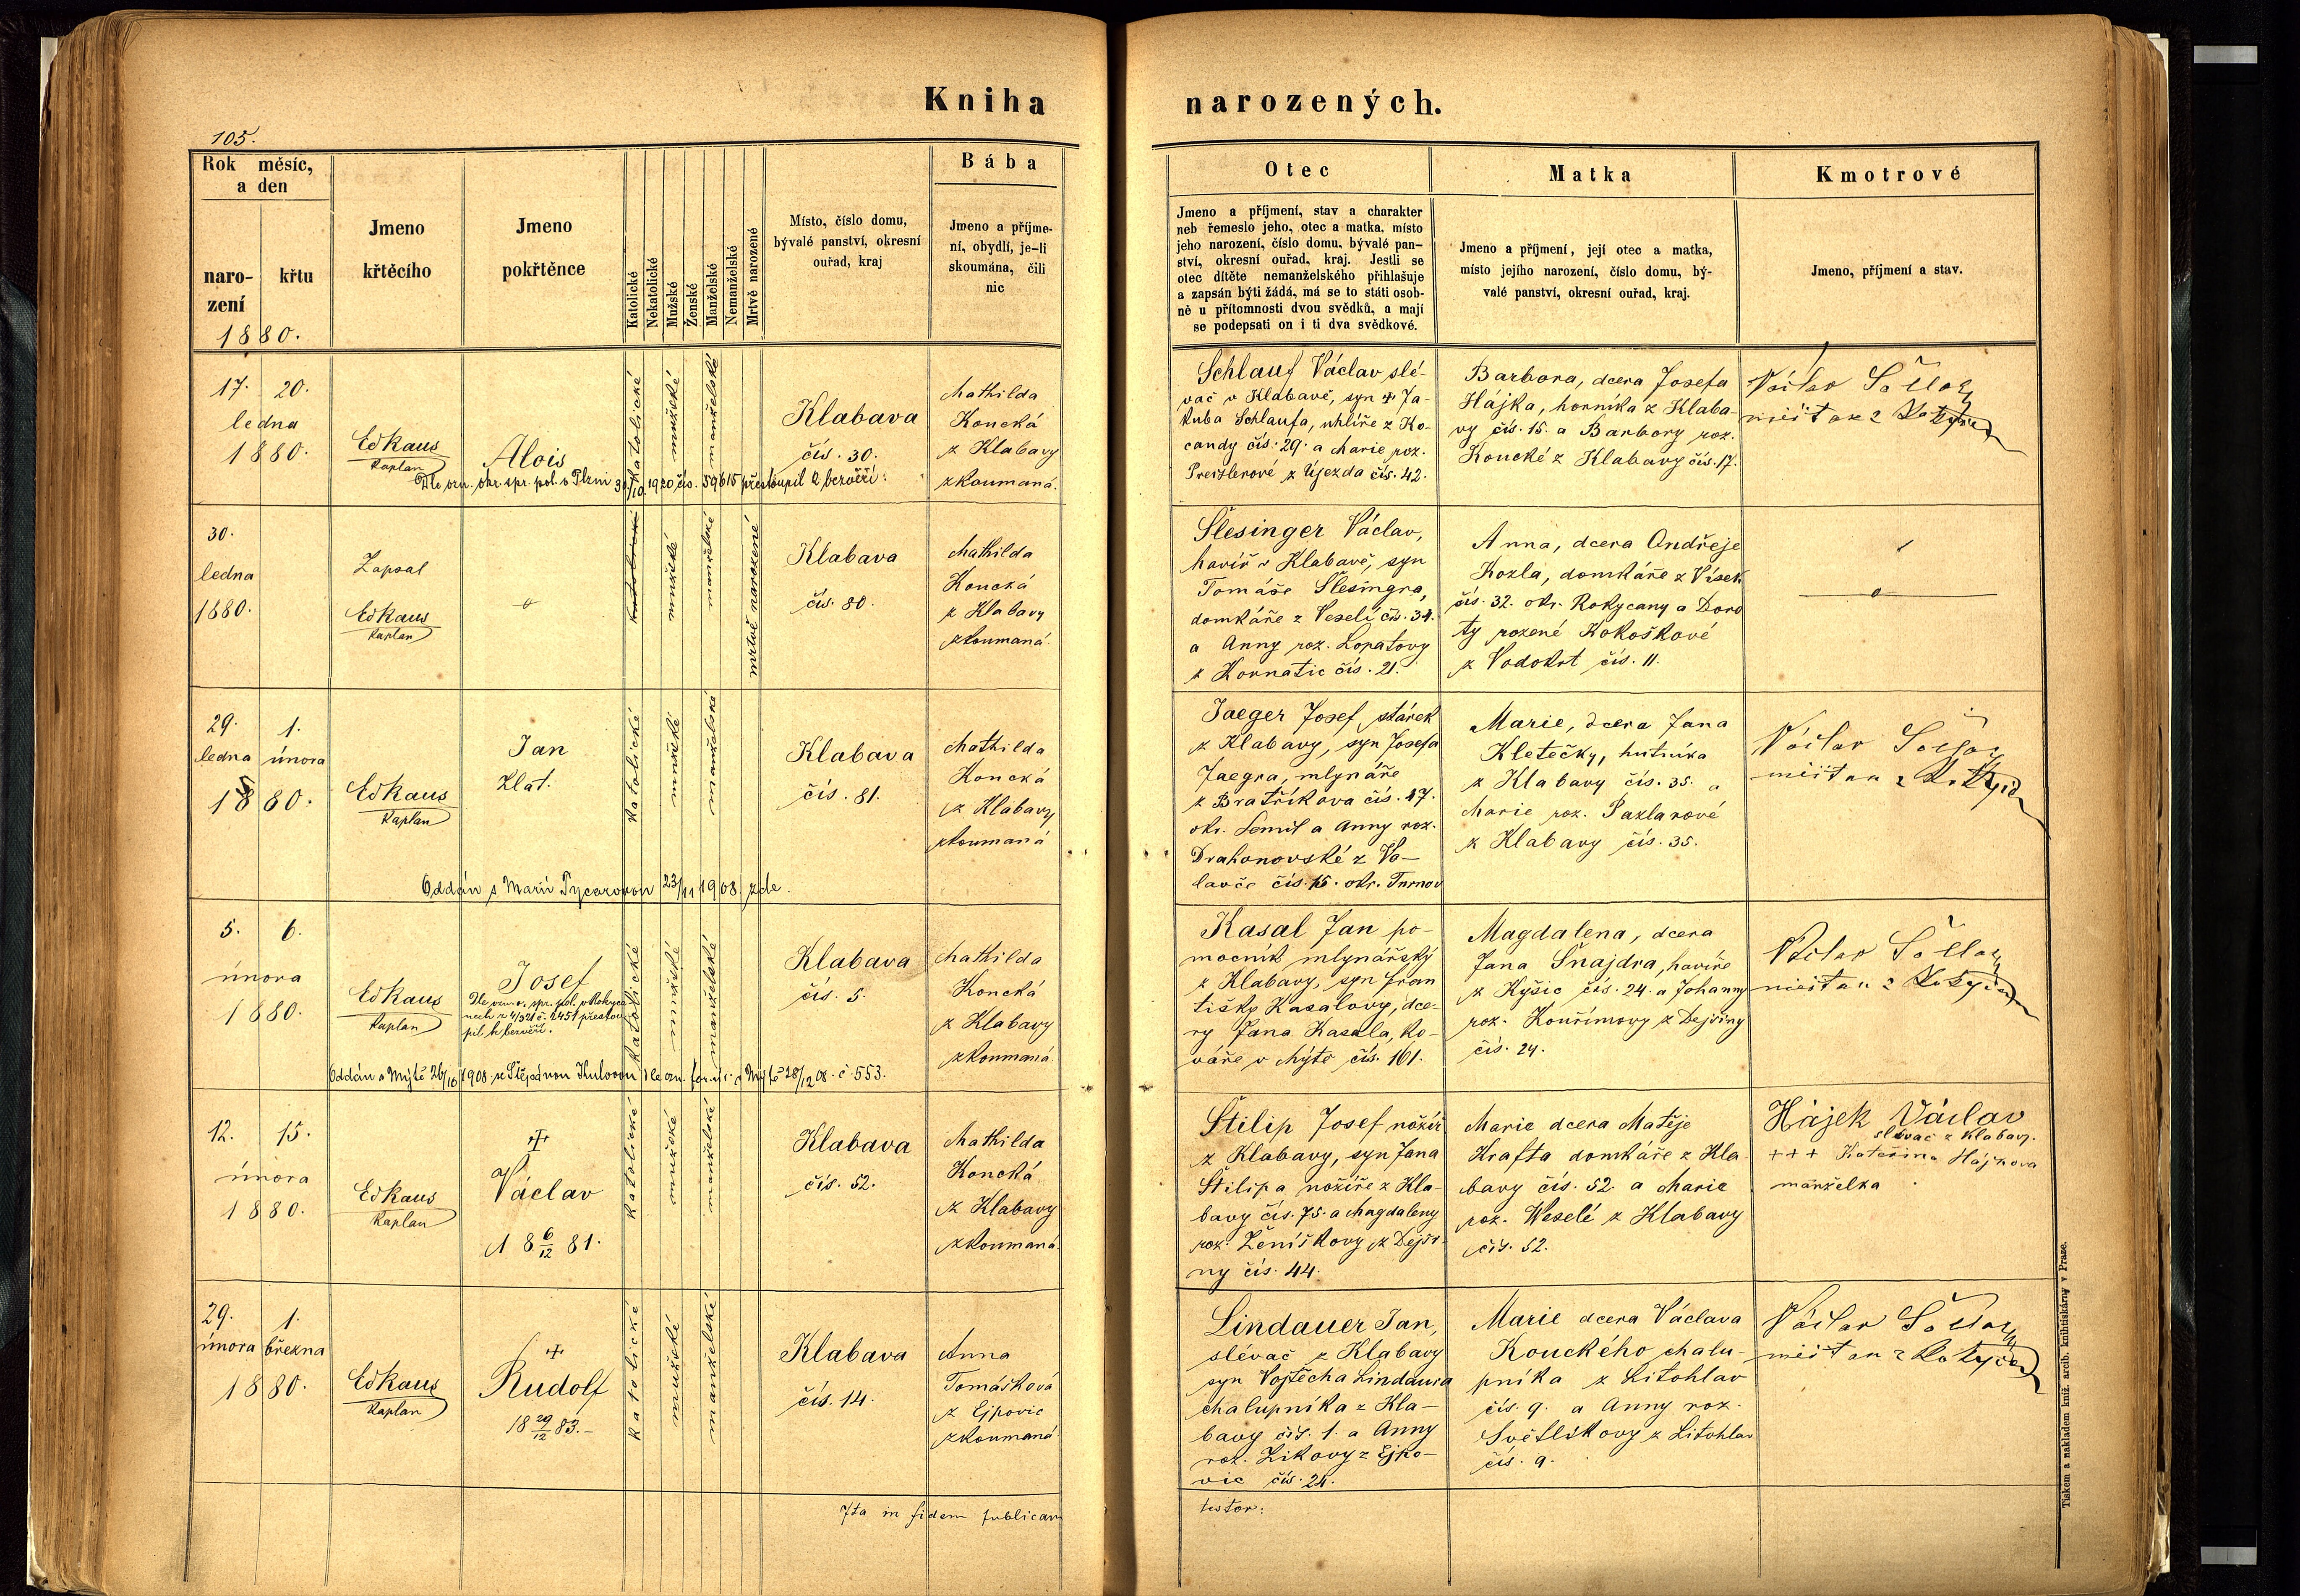 Kniha narozených.
105.
Rok měsíc,
a den
naro-
zení
křtu
1880.
Jmeno
křtěcího
Jmeno
pokřtěnce
Katolické
Nekatolické
Mužské
Ženské
Manželské
Nemanželské
Mrtvě narozené
Místo, číslo domu,
bývalé panství, okresní
ouřad, kraj
Bába
Jmeno a příjme-
ní, obydlí, je-li
skoumána, čili
nic
Otec
Jmeno a příjmení, stav a charakter
neb řemeslo jeho, otec a matka, místo
jeho narození, číslo domu, bývalé pan-
ství, okresní ouřad, kraj. Jestli se
otec dítěte nemanželského přihlašuje
a zapsán býti žádá, má se to státi osob-
ně u přítomnosti dvou svědků, a mají
se podepsati on i ti dva svědkové.
Matka
Jmeno a příjmení, její otec a matka,
místo jejího narození, číslo domu, bý-
valé panství, okresní ouřad, kraj.
Kmotrové
Jmeno, příjmení a stav.
17. 20.
ledna
1880.
Ed Kaus
Kaplan
Alois
katolické
mužské
manželské
Klabava
čís. 30.
Mathilda
Koucká
z Klabavy
zkoumaná.
Dle ozn. okr. spr. pol. v Plzni 30/10. 1920 čís. 59615 přestoupil k bezvěří.
Schlauf Václav slé-
vač v Klabavě, syn + Ja-
kuba Schlaufa, uhlíře z Ko-
candy čís. 29. a Marie roz.
Preislerové z Újezda čís. 42.
Barbora, dcera Josefa
Hájka, horníka z Klaba-
vy čís. 15. a Barbory roz.
Koucké z Klabavy čís. 17.
Václav
30.
ledna
1880.
Zapsal
Ed Kaus
Kaplan
katolické
mužské
manželské
mrtvě narozené
Klabava
čís. 80.
Mathilda
Koucká
z Klabavy
zkoumaná.
Šlesinger Václav,
havíř v Klabavě, syn
Tomáše Šlesingra,
domkáře z Veselí čís. 34.
a Anny roz. Lopatovy
z Kornatic čís. 21.
Anna, dcera Ondřeje
Kozla, domkáře z Vísek
čís. 32. okr. Rokycany a Doro
ty rozené Kokoškové
z Vodokrt čís. 11.
29. 1.
ledna února
1880.
Ed Kaus
Kaplan
Jan
Zlat.
katolické
mužské
manželské
Klabava
čís. 81.
Mathilda
Koucká
z Klabavy
zkoumaná
Oddán s Marií Tycarovou 23/11 1908 zde.
Jaeger Josef stárek
z Klabavy, syn Josefa
Jaegra, mlynáře
z Bratříkova čís. 47.
okr. Semil a Anny roz.
Drahonovské z Vo-
lavče čís. 15. okr. Turnov
Marie, dcera Jana
Kletečky, hutníka
z Klabavy čís. 35. a
Marie roz. Pazlarové
z Klabavy čís. 35.
Václav
5. 6.
února
1880.
Ed Kaus
Kaplan
Josef
Dle ozn. o. spr. pol. v Rokyca
nech z 4/3 21 č. 2451 přestou
pil k bezvěří.
katolické
mužské
manželské
Klabava
čís. 5.
Mathilda
Koucká
z Klabavy
zkoumaná.
Oddán v Mýtě 26/10 1908 se Štěpánou Kulovou dle ozn. far. úř. v Mýtě 28/12 08. č. 553.
Kasal Jan po-
mocník mlynářský
z Klabavy, syn Fran
tišky Kasalovy, dce-
ry Jana Kasala, ko-
váře v Mýtě čís. 161.
Magdalena, dcera
Jana Šnajdra, havíře
z Kyšic čís. 24. a Johanny
roz. Kouřimovy z Dejšiny
čís. 24.
Václav
12. 15.
února
1880.
Ed Kaus
Kaplan
+
Václav
18 6/12 81.
katolické
mužské
manželské
Klabava
čís. 52.
Mathilda
Koucká
z Klabavy
zkoumaná.
Štilip Josef nožíř
z Klabavy, syn Jana
Štilipa nožíře z Kla-
bavy čís. 75. a Magdaleny
roz. Ženíškovy z Dejši-
ny čís. 44.
Marie dcera Matěje
Krafta domkáře z Kla
bavy čís. 52. a Marie
roz. Weselé z Klabavy
čís. 52.
Hájek Václav
slévač z Klabavy.
+++ Kateřina Hájkova
manželka
29. 1.
února března
1880.
Ed Kaus
Kaplan
+
Rudolf
18 29/12 83.-
katolické
mužské
manželské
Klabava
čís. 14.
Anna
Tomášková
z Ejpovic
zkoumaná
Lindauer Jan,
slévač z Klabavy
syn Vojtěcha Lindaura
chalupníka z Kla-
bavy čís. 1. a Anny
roz. Zikovy z Ejpo-
vic čís. 24.
Marie dcera Václava
Kouckého chalu-
pníka z Litohlav
čís. 9. a Anny roz.
Světlíkovy z Litohlav
čís. 9.
Václav
Ita in fidem publicam
testor:
Tiskem a nákladem kníž. arcib. knihtiskárny v Praze.